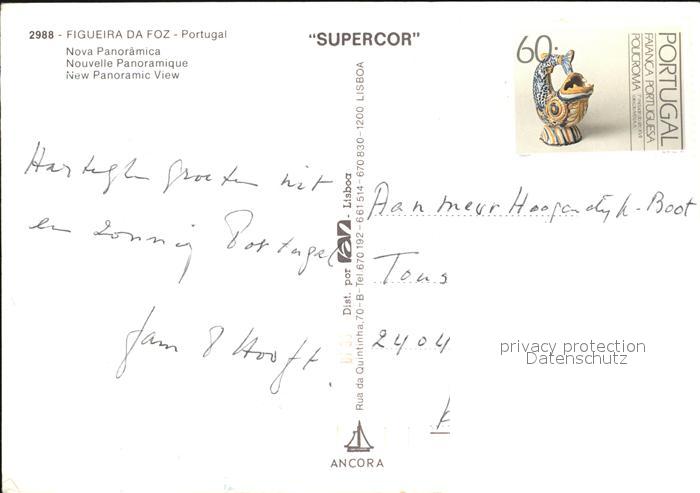 2988 - FIGUEIRA DA FOZ - Portugal
Nova Panorâmica
Nouvelle Panoramique
New Panoramic View
"SUPERCOR"
60.
PORTUGAL
FAIANÇA PORTUGUESA
POLICROMIA
Hartelijke groeten uit
en zonnig Portugal
Jam 't Hooft.
Dist. por - Lisboa
Rua da Quintinha, 70-B-Tel. 670 192 - 661 514 - 670 830 - 1200 LISBOA
Aan mevr Hoogendijk-Boot
Tous
2404
privacy protection
Datenschutz
ANCORA